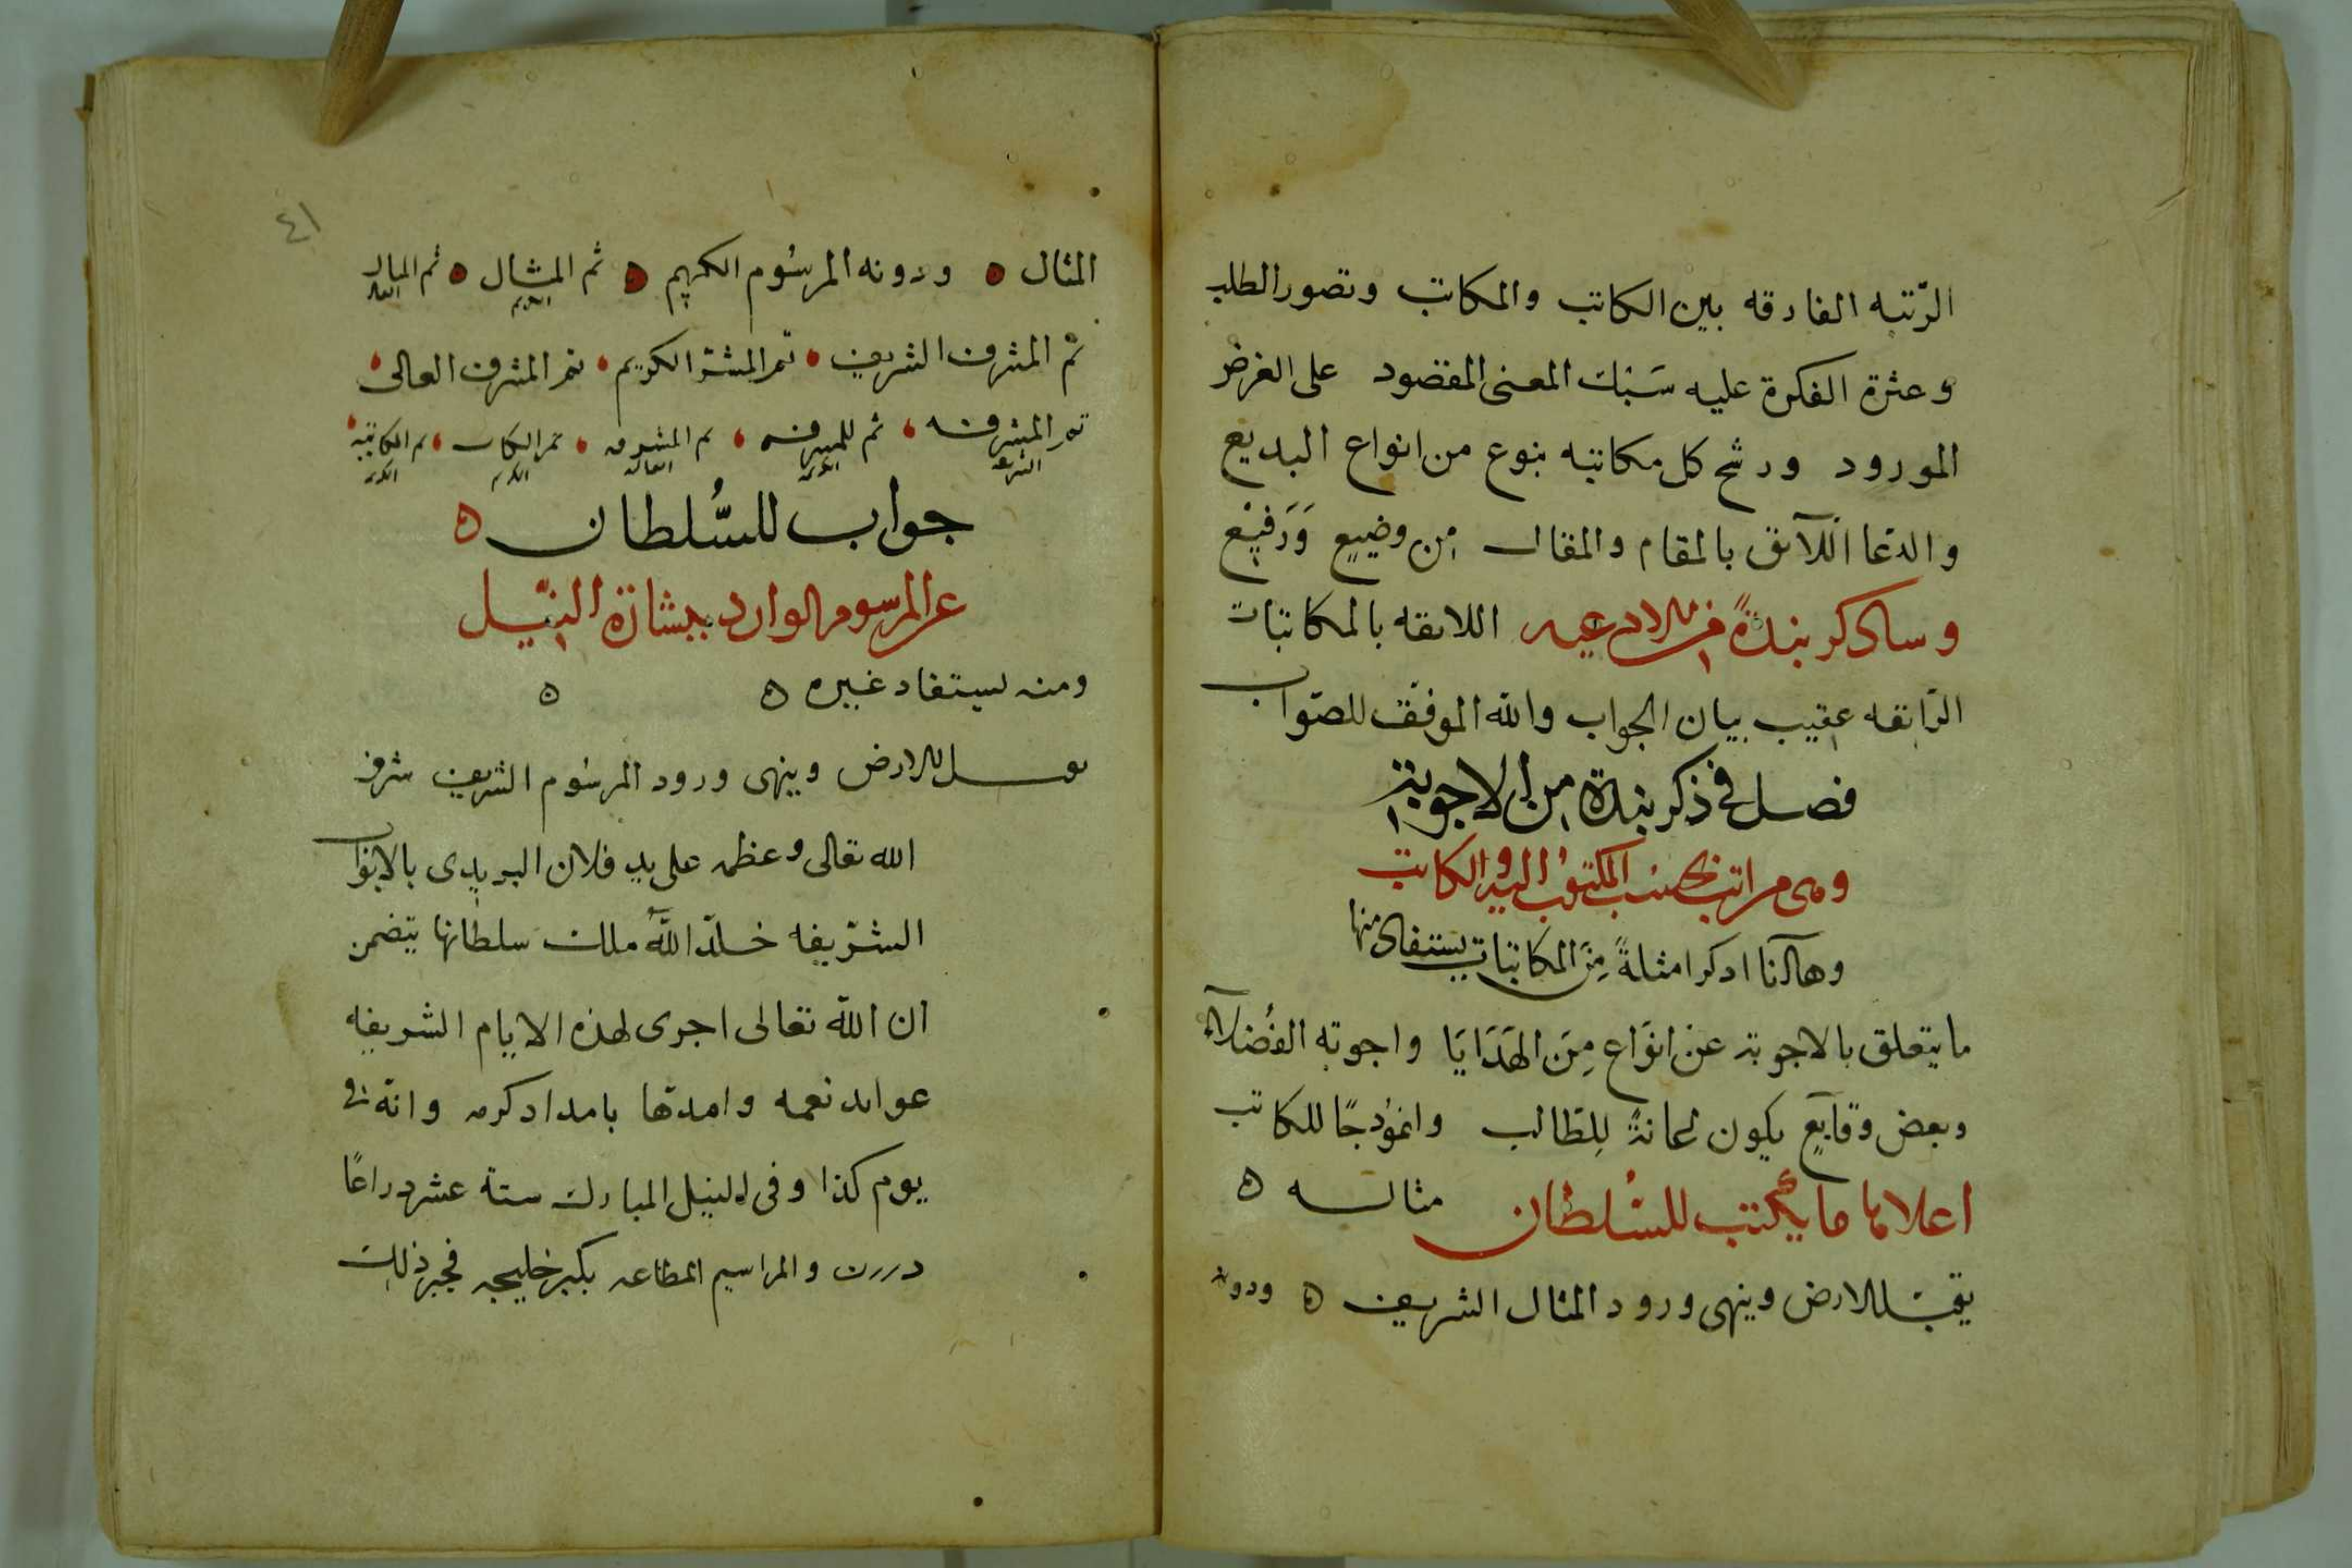 الرّتبه الفارقه بين الكاتب والمكاتب وتصور الطلب
وعثرة الفكرة عليه سَبْك المعنى المقصود على الغرض
المورود ورشح كل مكاتبه بنوع من انواع البديع
والدعا اللآىق بالمقام والمقال من وضيع وَرَفيْع
وساذكر نبذةً من الادعيه اللاىقه بالمكاتبات
الرّاىقه عقيب بيان الجواب والله الموفق للصّواب
فصل فى ذكر نبذة من الاجوبة
وهى مراتب بحسب المكتوب اليه والكاتب
وها انا اذكر امثلةً مِنَ المكاتبات يستفاد منها
ما يتعلق بالاجوبة عَن انوَاع مِنَ الهَدَايَا واجوبه الفُضَلآء
وبعض وقايع يكون اعانةً لِلطّالب وانموذجًا للكاتب
اعلاها ما يكتب للسُلطان مثاله ه
يقبّل الارض وينهى ورود المثال الشريف ه ودونه
٤١
المثال ودونه المرسُوم الكريم ثم المثال الكريم ثم المثال العالى
ثم المشرف الشريف ثم المشرف الكريم ثم المشرف العالى
ثم المشرفه الشريفه ثم المشرفه الكريمه ثم المشرفه العاليه ثم الكتاب الكريم ثم المكاتبة الكريمه
جواب للسُّلطان ه
عن المرسوم الوارد ببشارة النيّل
ومنه يستفاد غيره ه ه
يقبل الارض وينهى ورود المرسُوم الشريف شرفه
الله تعالى وعظمه على يد فلان البريدى بالابواب
الشرّيفه خلّد اللهُ ملك سلطانها يتضمن
ان الله تعالى اجرى لهذه الايام الشريفه
عوايد نعمه وامدّها بامداد كرمه وانه فى
يوم كذا وفى النيل المبارك ستة عشر دراعًا
والمراسيم المطاعه بكسر خليجه فجبر ذلك